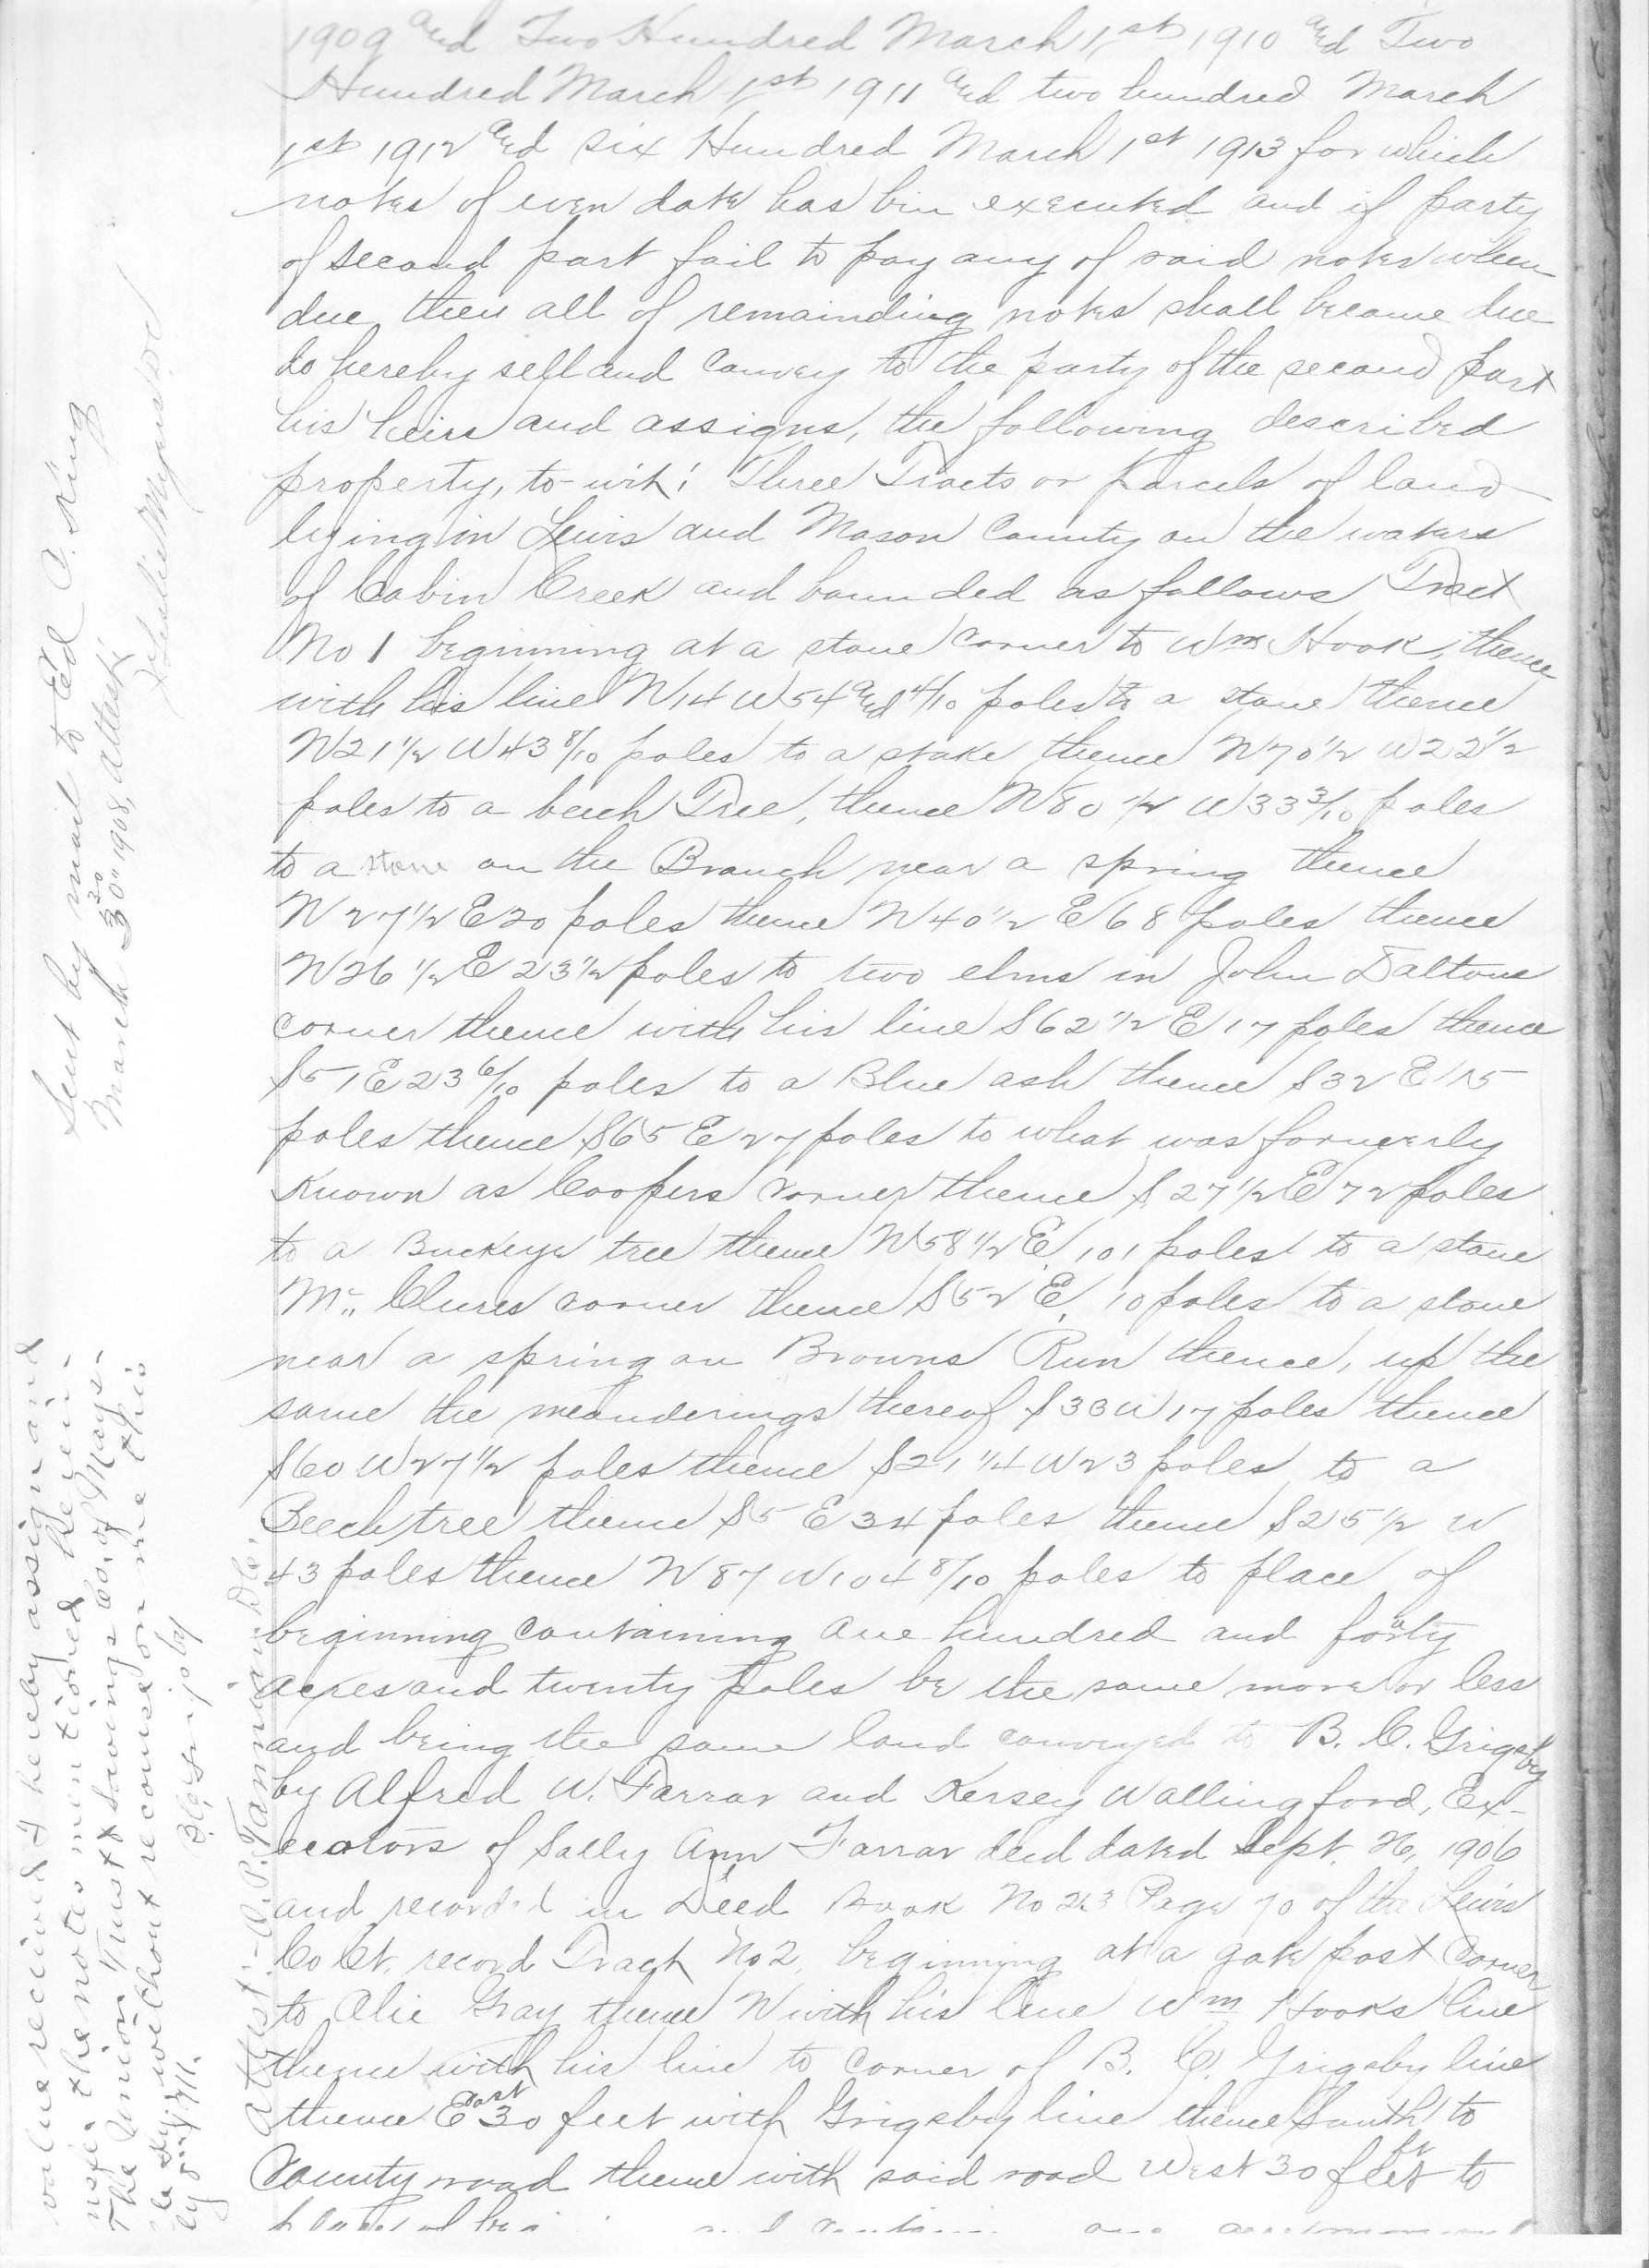 1909 and Two Hundred March 1st 1910 and Two
Hundred March 1st 1911 and two hundred March
1st 1912 and six Hundred March 1st 1913 for which
notes of even date has bin executed and if party
of second part fail to pay any of said notes when
due then all of remainding notes shall become due
do hereby sell and convey to the party of the second part
his heirs and assigns, the following described
property, to-wit: Three Tracts or parcels of land
lying in Lewis and Mason County on the waters
of Cabin Creek and bounded as follows Tract
No 1 beginning at a stone corner to Wm Hook, thence
with his line N14 W54 and 4/10 poles to a stone thence
N21 1/2 W43 8/10 poles to a stake thence N70 1/2 W22 1/2
poles to a beech Tree, thence N80 1/2 W33 3/10 poles
to a stone on the Branch near a spring thence
N27 1/2 E20 poles thence N40 1/2 E68 poles thence
N26 1/2 E 23 1/2 poles to two elms in John Daltons
corner thence with his line S62 1/2 E17 poles thence
S51E23 6/10 poles to a Blue ash thence S32 E15
poles thence S65 E27 poles to what was formerly
Known as Coopers corner thence S 27 1/2 E72 poles
to a Buckeye tree thence N58 1/2 E. 101 poles to a stone
Mc. Clures corner thence S52 E. 10 poles to a stone
near a spring on Browns Run thence, up the
same the meanderings thereof S33W17 poles thence
S60 W27 1/2 poles thence S21 1/4 W23 poles to a
Beech tree thence S5 E34 poles thence S25 1/2 W
43 poles thence N87 W104 8/10 poles to place of
beginning containing one hundred and forty
acres and twenty poles be the same more or less
and being the same land conveyed to B. C. Grigsby
by Alfred W. Farrar and Kersey Wallingford, Ex-
ecutors of Sally Ann Farrar deed dated Sept. 26, 1906
and recorded in Deed Book No 23 Page 70 of the Lewis
Co Ct. record Tract No 2, beginning at a gate post corner
to Alie Gray thence N with his line Wm Hooks line
thence with his line to corner of B. C. Grigsby line
thence East 30 feet with Grigsby line thence South to
County road thence with said road West 30 feet to
Sent by mail to Ed C. King
March 30" 1908, attest:
value received I hereby assign and
the notes mentioned herein
The Union Trust & Savings Co. of Mays-
without recourse on me this
1911.
B. C. Grigsby
Attest: